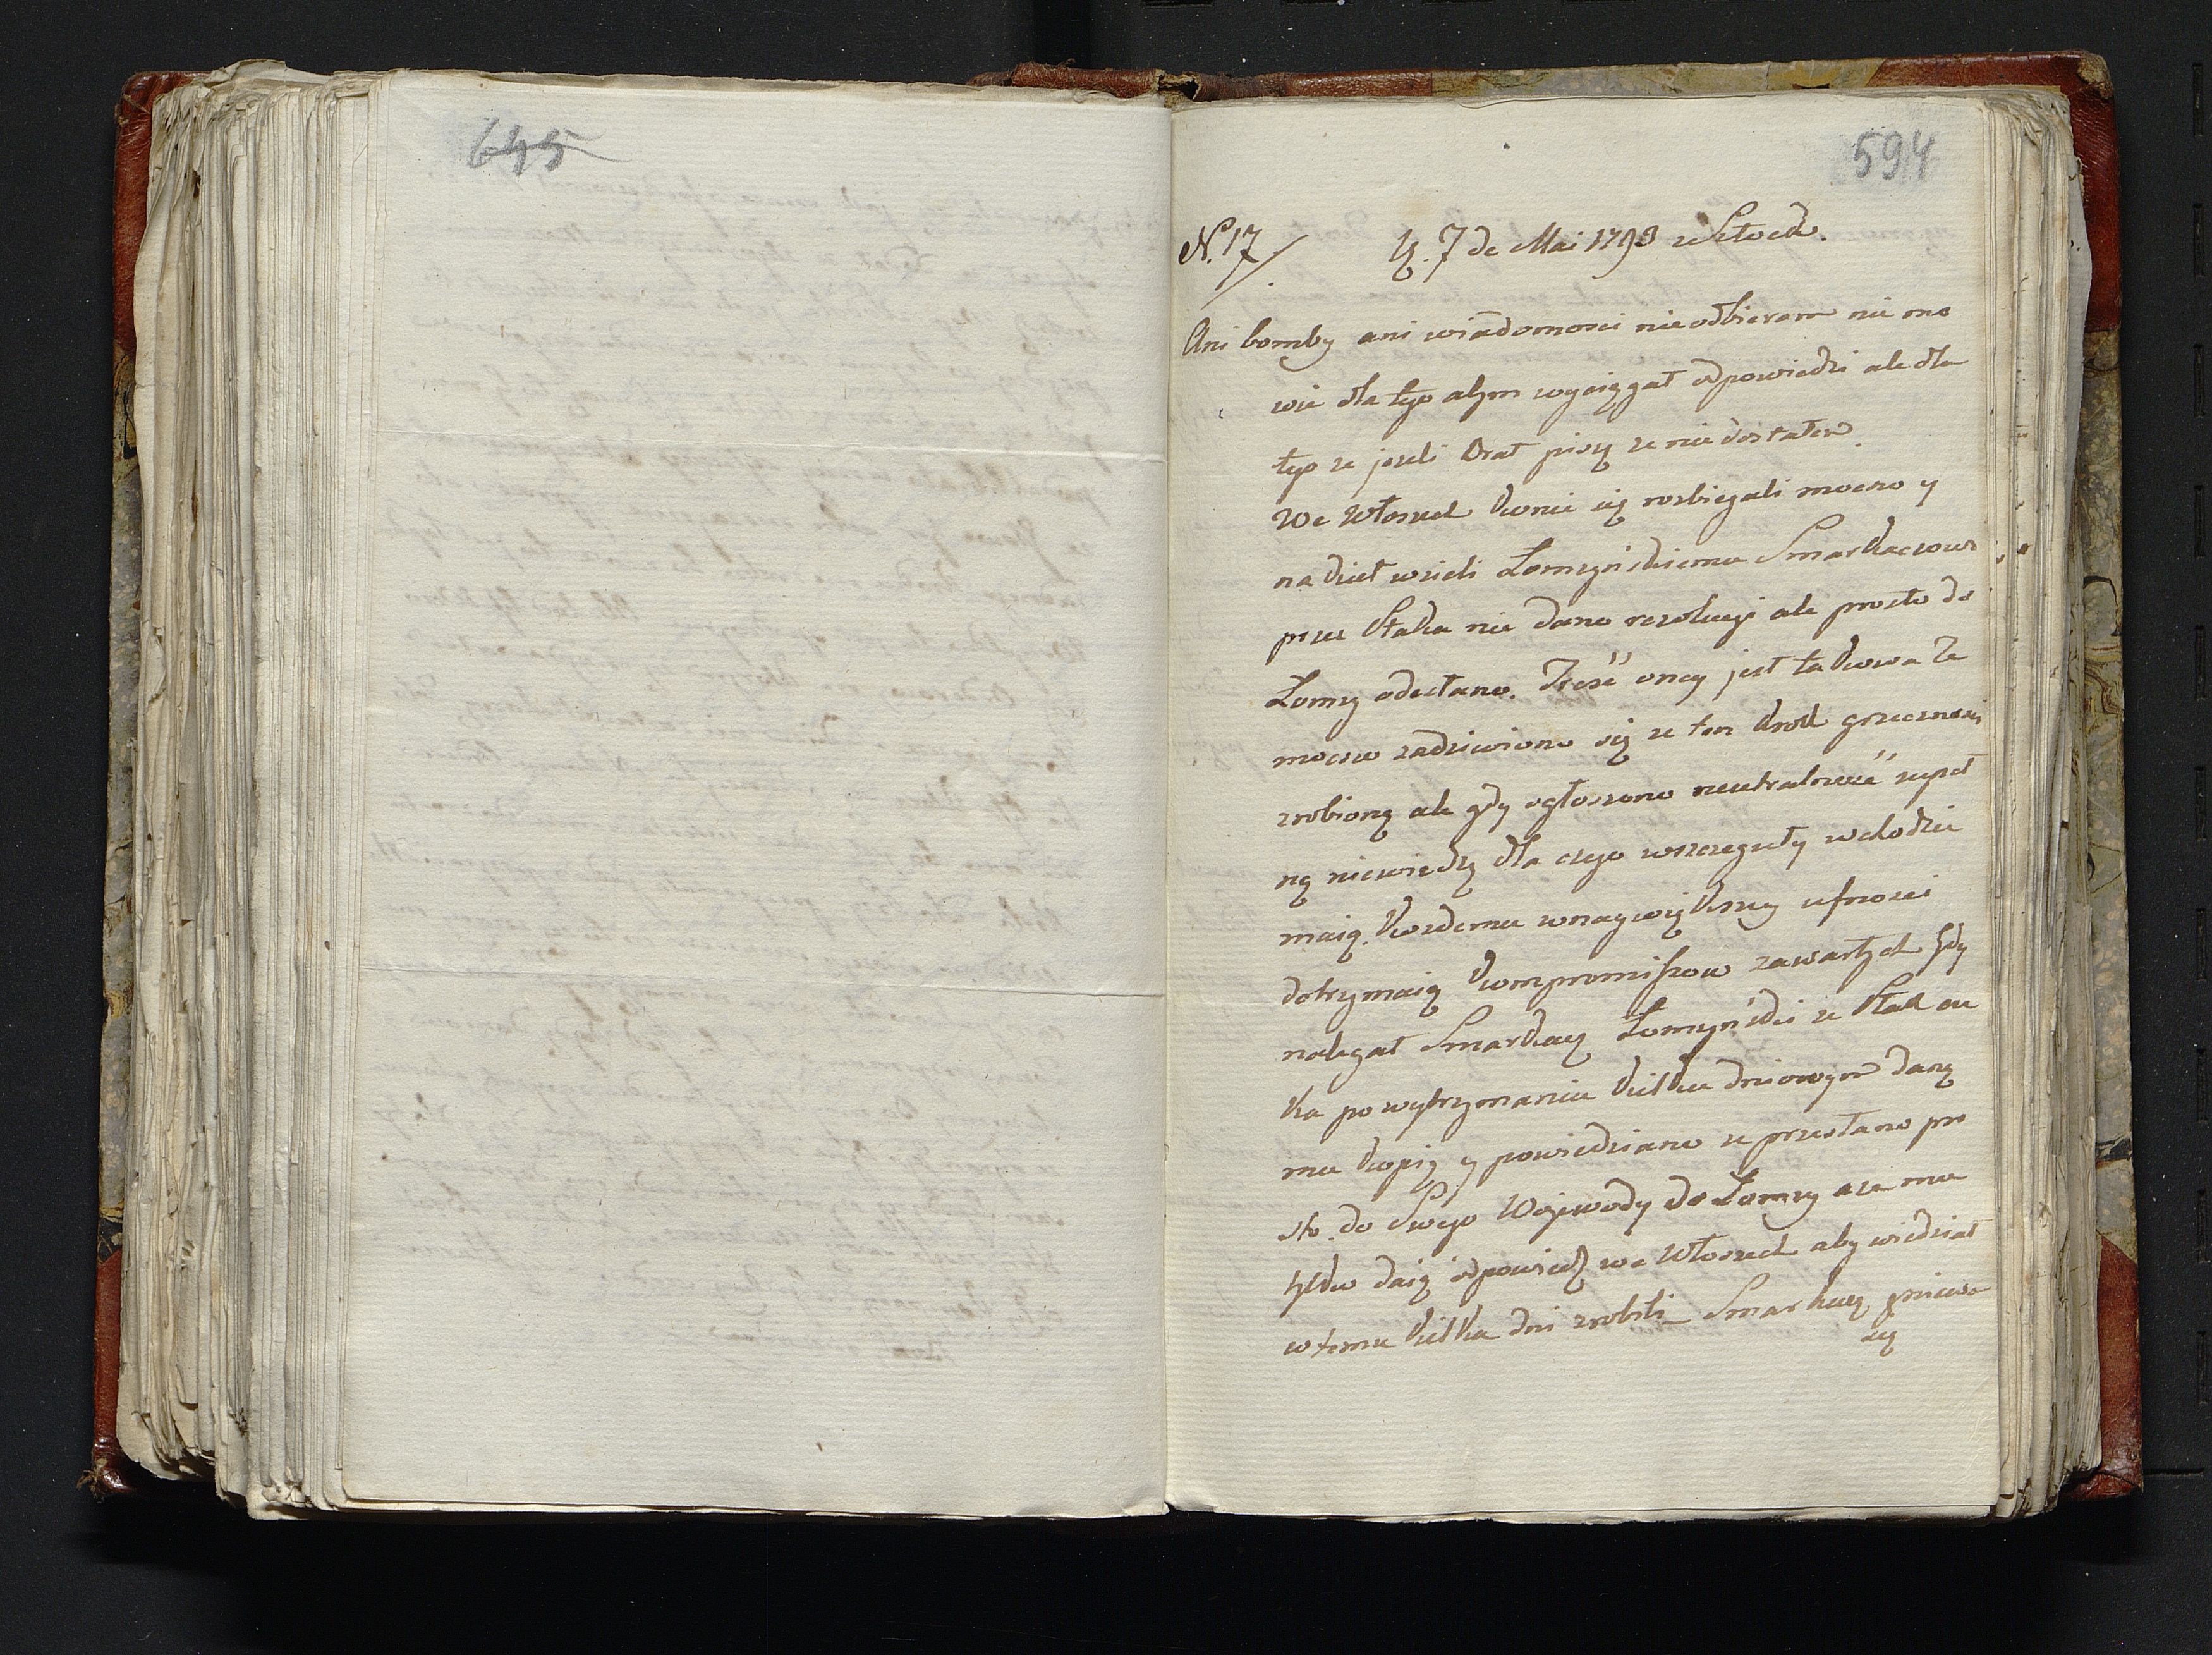 645
594
N.17 7 de Mai 1793
Ani bomby ani wiadomosci nieodbieram nie mo
wie dla tego abym wyciągał odpowiedzi ale dla
tego ze jezeli Brat piszę ze nie dostałem.
We Włoszech się rozbiegali mocno y
na wzieli Łomzyńskiemu Smarkaczowi
przez Ptaka nie dano rezolucyi ale prosto do
Łomzy odesłano. Treść oney jest takowa Ze
mocno zadziwiono się ze ten krok grzecznosci
zrobiony ale gdy ogłoszono neutralność zupeł
ną niewiedzą dla czego wszczeguły wchodzić
maią. wnaywiększey ufnosci
dotrzymaią kompromissow zawartych Gdy
nalegał Smarkacz Łomzyński ze Ptak cze
ka po wytrzymaniu kilku dniowym daną
mu kopią y powiedziano ze przesłano pro
sto do Swego Wojewody do Łomzy a ze mu
tylko daią odpowiedz we Włoszech aby wiedział
w temu kilka dni zrobili Smarkacz gniewa
się